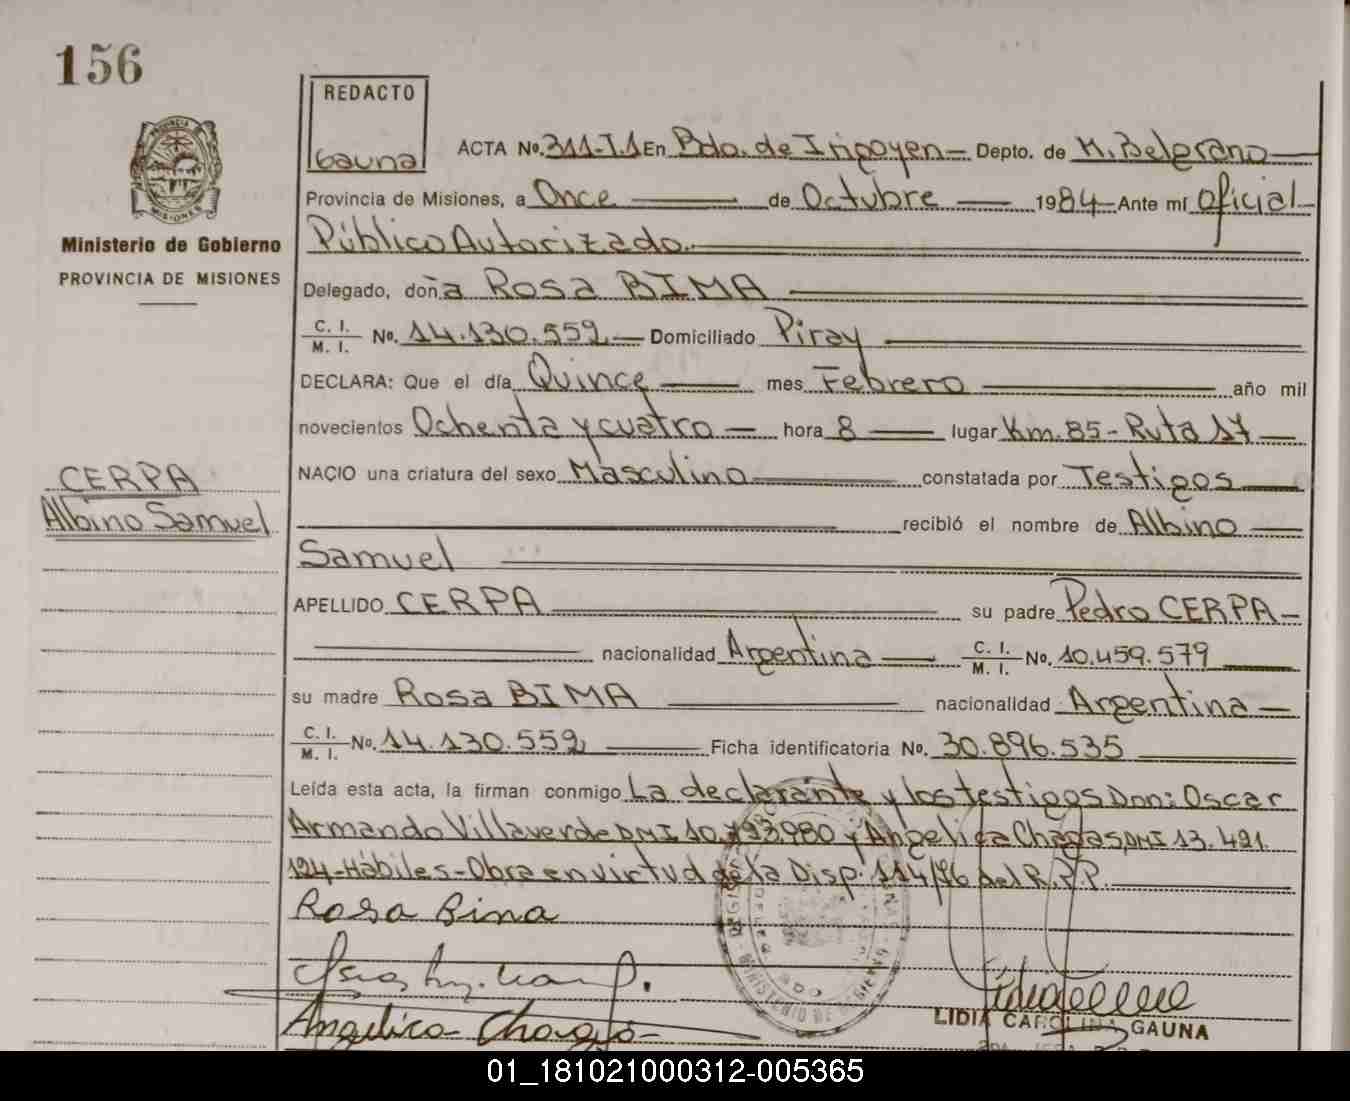 156
REDACTO
Gauna
ACTA No. 311-T1 En Bdo. de Irigoyen - Depto. de M. Belgrano
Provincia de Misiones, a Once de Octubre 1984 Ante mí Oficial
Público Autorizado.
Ministerio de Gobierno
PROVINCIA DE MISIONES
Delegado, doña Rosa BIMA
C. I.
M. I. No. 14.130.552 Domiciliado Piray
DECLARA: Que el día Quince mes Febrero año mil
novecientos Ochenta y cuatro hora 8 lugar Km. 85 - Ruta 17
NACIO una criatura del sexo Masculino constatada por Testigos
CERPA
Albino Samuel
recibió el nombre de Albino
Samuel
APELLIDO CERPA su padre Pedro CERPA
nacionalidad Argentina C. I.
M. I. No. 10.459.579
su madre Rosa BIMA nacionalidad Argentina
C. I.
M. I. No. 14.130.552 Ficha identificatoria No. 30.896.535
Leída esta acta, la firman conmigo La declarante y los testigos Don: Oscar
Armando Villaverde DNI 10.793.980 y Angelica Chagas, DNI 13.421.
124 - Hábiles - Obra en virtud de la Disp. 114/ del R.P.P.
Rosa Bina
Angelica Chagas
LIDIA CAROLINA GAUNA
01_181021000312-005365